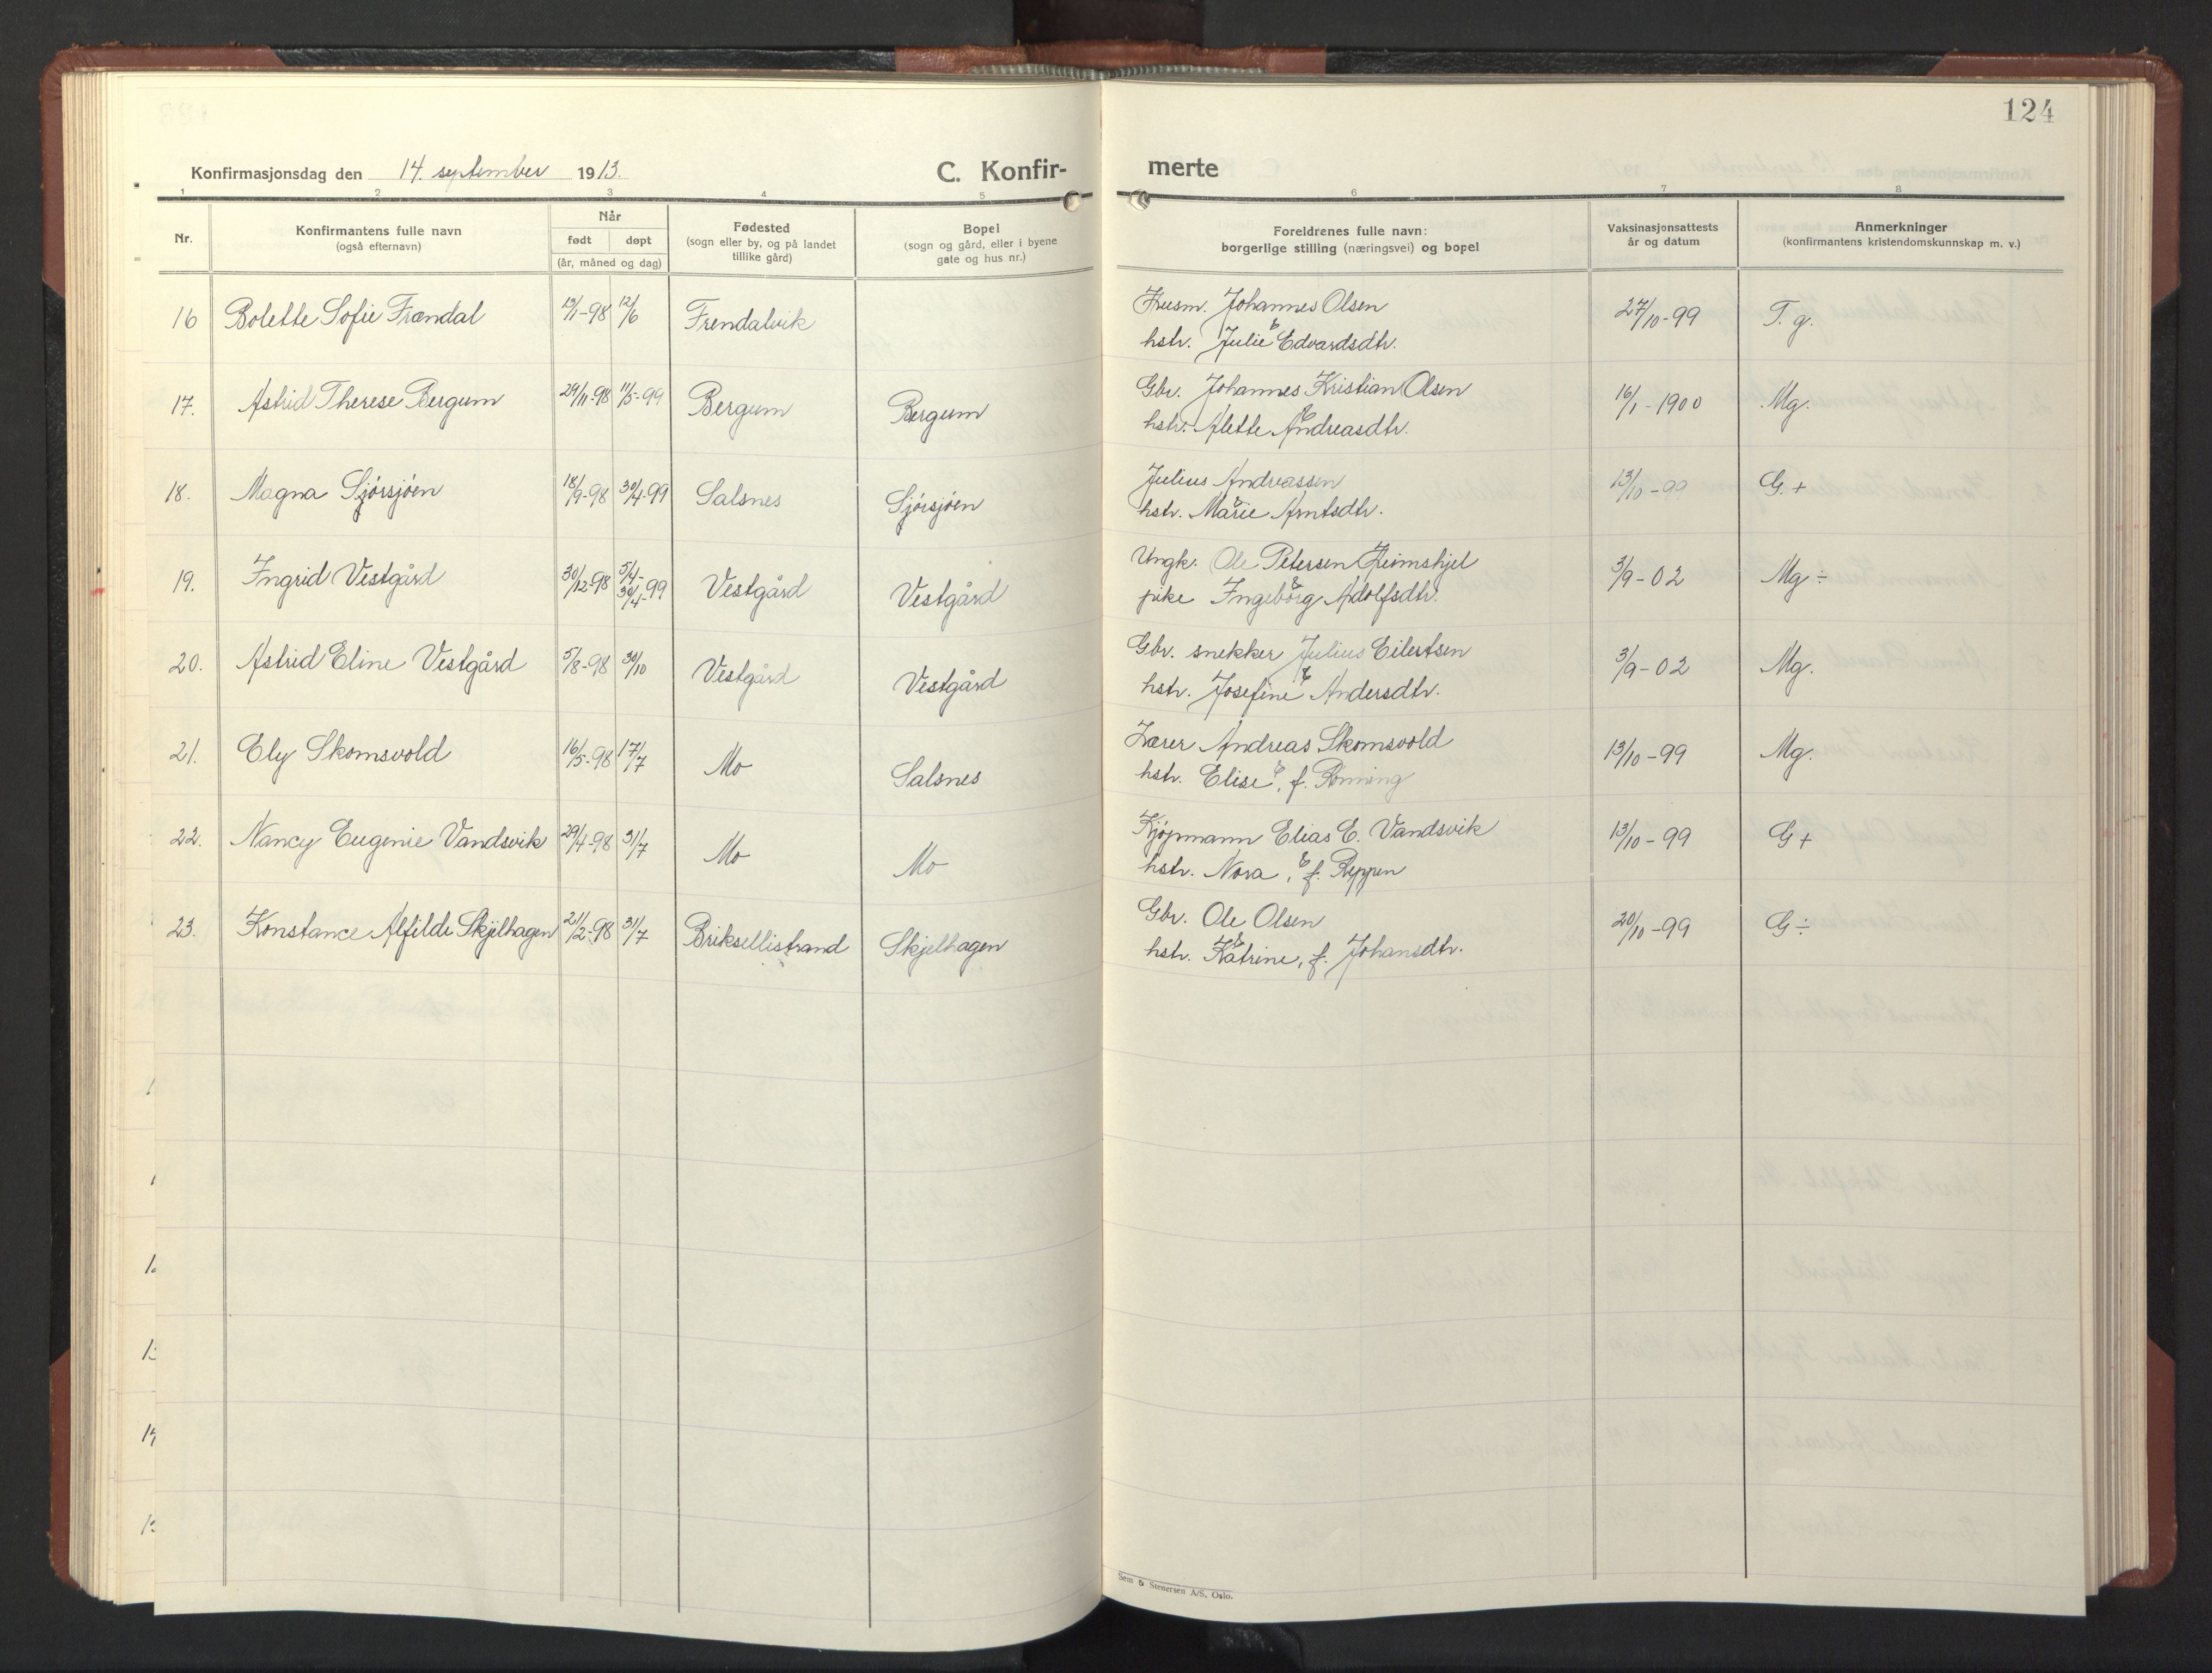 124
Konfirmasjonsdag den 14. september 1913.
C. Konfir-
merte
1 2 3 4 5 6 7 8
Nr.
Konfirmantens fulle navn
(også efternavn)
Når
født døpt
(år, måned og dag)
Fødested
(sogn eller by, og på landet
tillike gård)
Bopel
(sogn og gård, eller i byene
gate og hus nr.)
Foreldrenes fulle navn:
borgerlige stilling (næringsvei) og bopel
Vaksinasjonsattests
år og datum
Anmerkninger
(konfirmantens kristendomskunnskap m. v.)
16 Bolette Sofie Frændal 12/6 Frendalvik Husm. Johannes Olsen 27/10-99 T. g.
hstr. Julie & Edvardsdtr.
17. Astrid Therese Bergum 29/11-98 11/5-99 Bergum Bergum Gbr. Johannes Kristian Olsen 16/1-1900 Mg.
hstr. Alette & Andreasdtr.
18. Magna Sjórsjóen 18/9-98 30/4-99 Salsnes Sjórsjóen Julius Andreassen 13/10-99 G.+
hstr. & Marie Arntsdtr.
19. Ingrid Vestgård 30/12-98 5/4-30/4-99 Vestgård Vestgård Ungk. Ole Petersen Heimshjel 3/9-02 Mg ÷
pike Ingeborg & Adolfsdtr.
20. Astrid Eline Vestgård 5/8-98 30/10 Vestgård Vestgård Gbr. snekker Julius Eilertsen 3/9-02 Mg.
hstr. Josefine & Andersdtr.
21. Ely Skomsvold 16/5-98 17/7 Mo Salsnes Lærer Andreas Skomsvold 13/10-99 Mg.
hstr. Elise &, f. Rønning
22. Nancy Eugenie Vandsvik 29/4-98 31/7 Mo Mo Kjópmann Elias E. Vandsvik 13/10-99 G+
hstr. Nora, & f. Reppen
23. Konstance Alfilde Skjelhagen 21/2-98 31/7 Briksellistrand Skjelhagen Gbr. Ole Olsen 20/10-99 G÷
hstr. & Katrine, f. Johansdtr.
Sem & Stenersen A/S, Oslo.